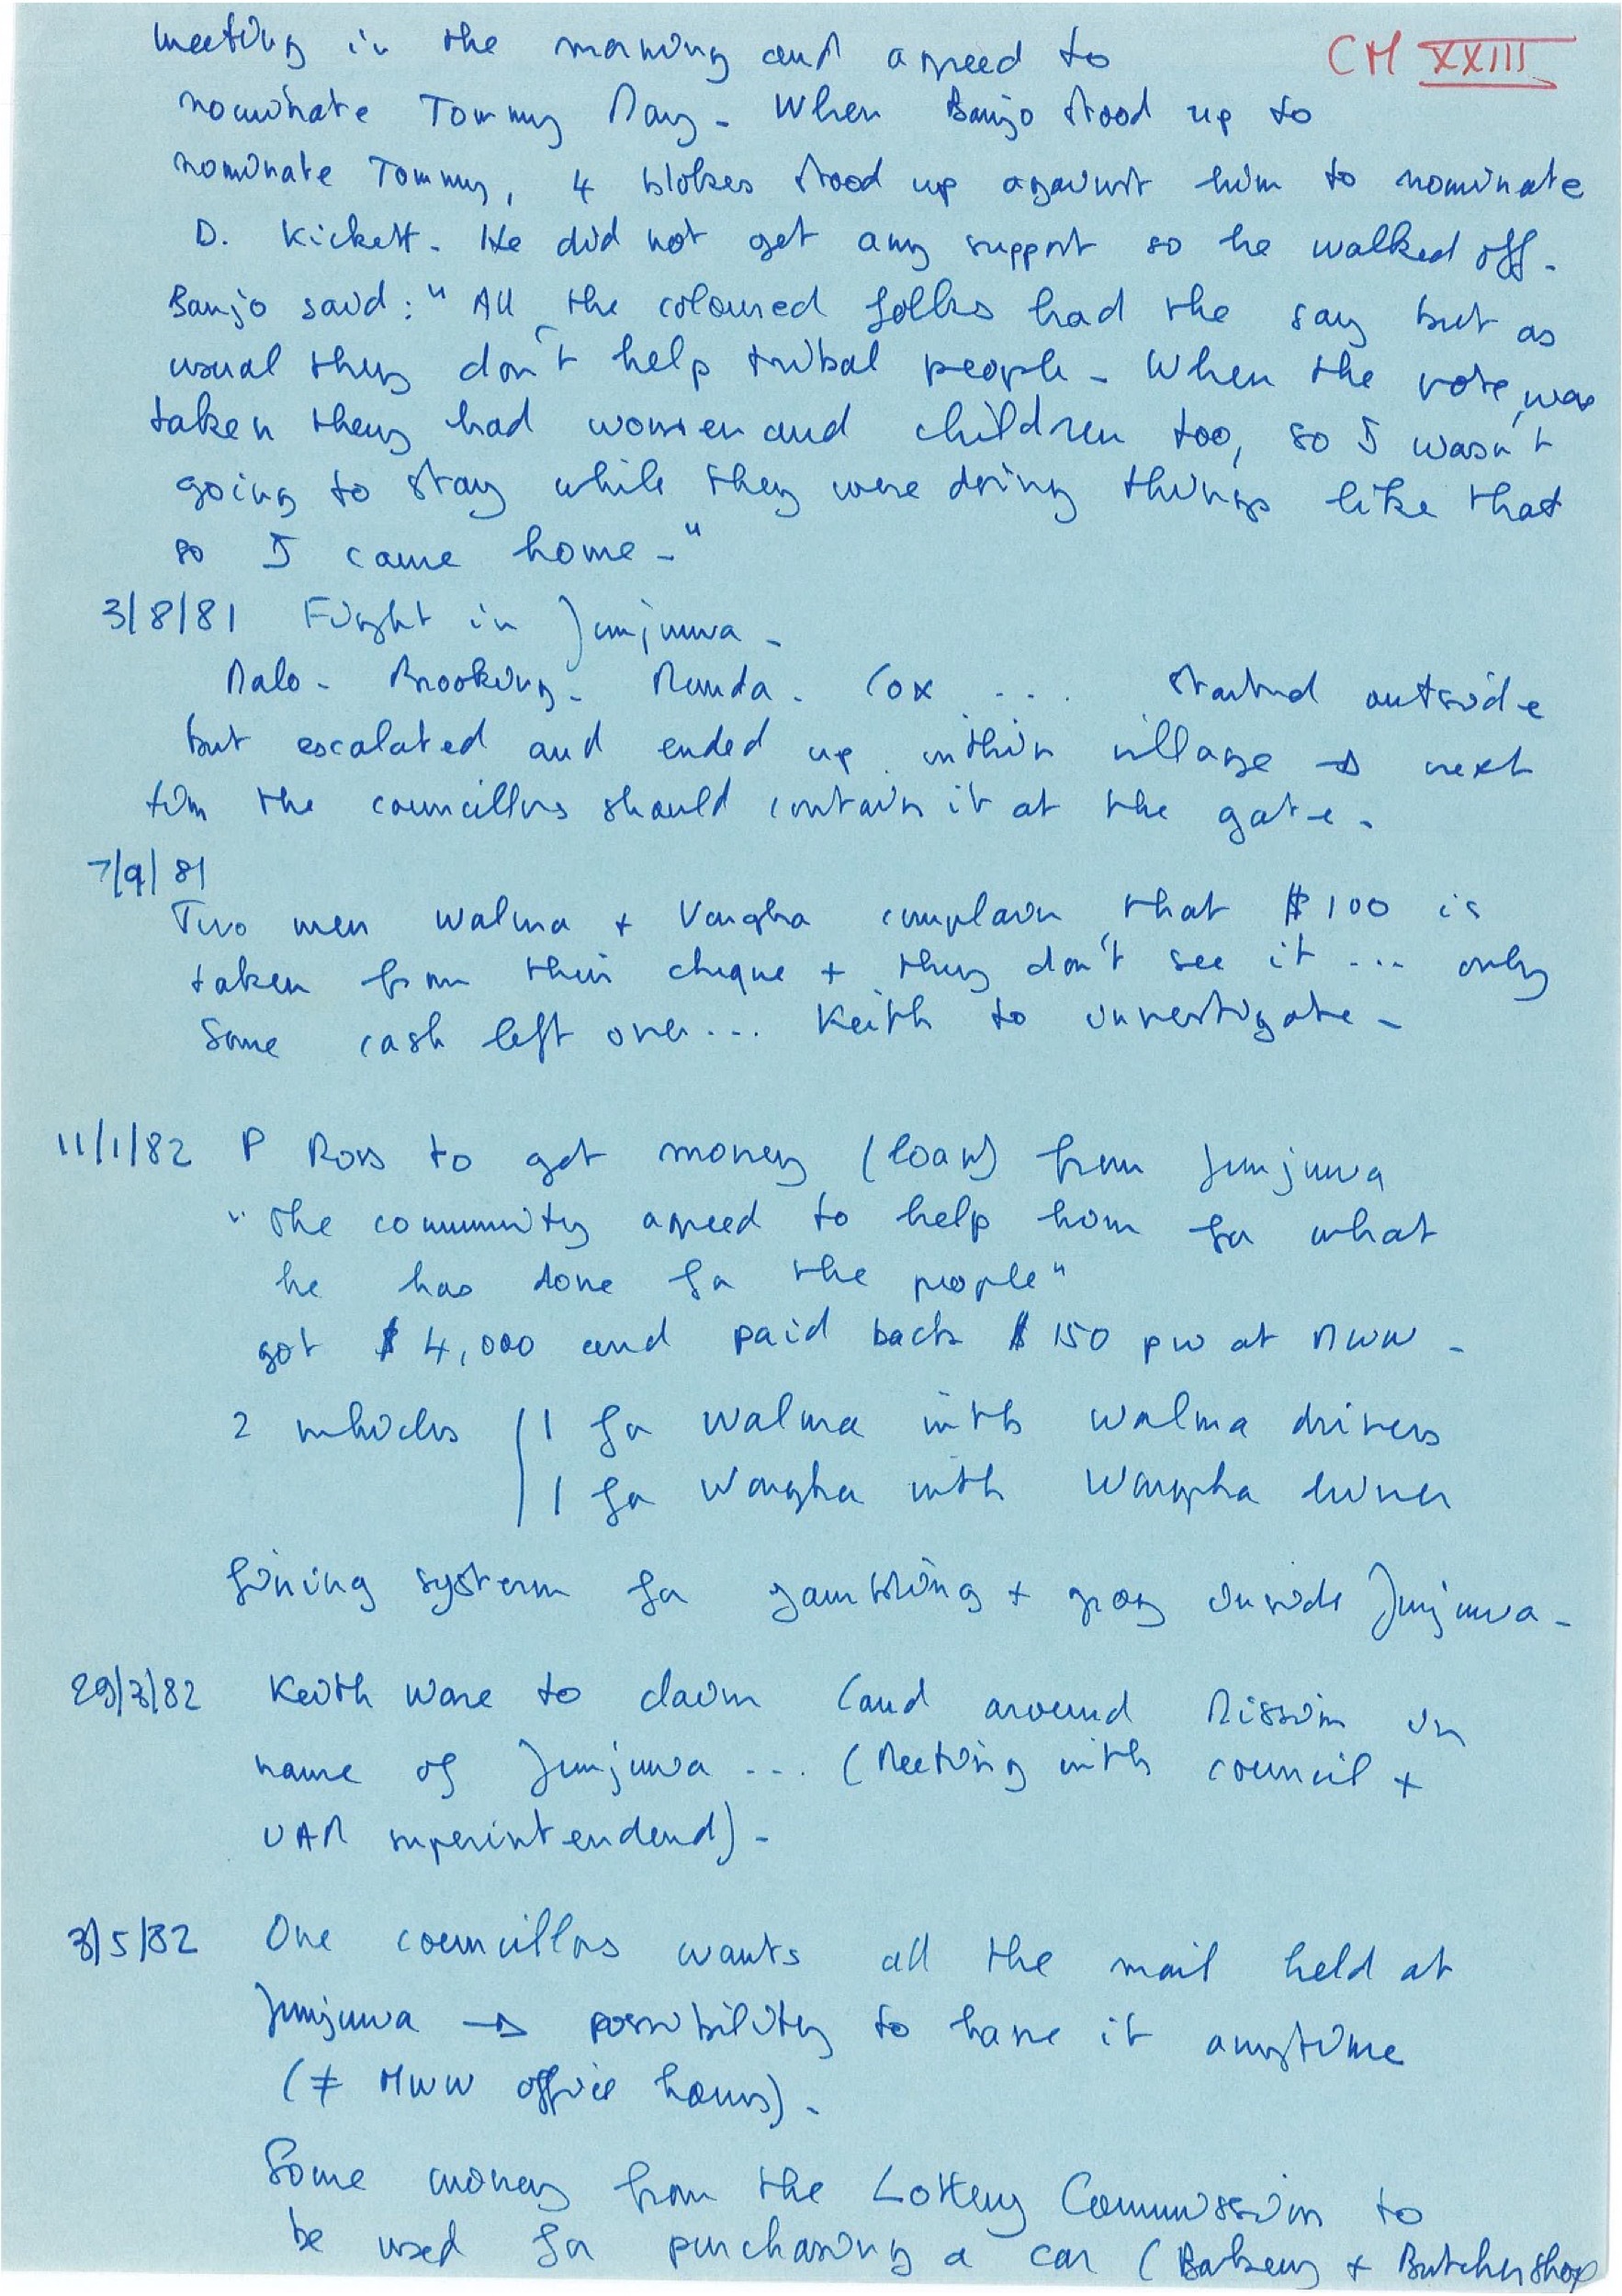 CM XXIII
meeting in the morning and agreed to
nominate Tommy May - When Banjo stood up to
nominate Tommy, 4 blokes stood up against him to nominate
D. Kickett - He did not get any support so he walked off -
Banjo said: "All the coloured folks had the say but as
usual they don't help tribal people - When the vote was
taken they had women and children too, so I wasn't
going to stay while they were doing things like that
so I came home -"
3/8/81 Fight in Junjuwa -
Malo - Brooking - Munda - Cox ... started outside
but escalated and ended up within village → next
tim the councillors should contain it at the gate -
7/9/81
Two men Walma + Wangha complain that $100 is
taken from their cheque + they don't see it ... only
some cash left over ... Keith to investigate -
11/1/82 P Ross to get money (loan) from Junjuwa
"the community agreed to help him for what
he has done for the people"
got $4,000 and paid back $150 pw at MWW -
2 vehicles | 1 for Walma with Walma drivers
| 1 for Wangha with Wangha driver
fining system for gambling + grog inside Junjuwa -
29/3/82 Keith Ware to claim land around Mission in
name of Junjuwa ... (Meeting with council +
UAM superintendend) -
3/5/82 One councillors wants all the mail held at
Junjuwa → possibility to have it anytime
(≠ MWW office hours) -
Some money from the Lottery Commission to
be used for purchasing a car (Bakery + Butchershop